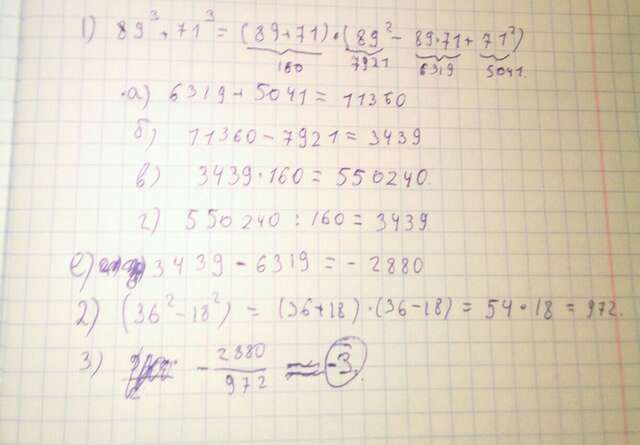 1) 89³ + 71³ = (89+71)·(89² - 89·71 + 71²)
160 7921 6319 5041.
а) 6319 + 5041 = 11360
б) 11360 - 7921 = 3439
в) 3439·160 = 550240.
г) 550240 : 160 = 3439.
е) 3439 - 6319 = - 2880
2) (36² - 18²) = (36+18)·(36-18) = 54·18 = 972.
3) - 2880/972 = -3.